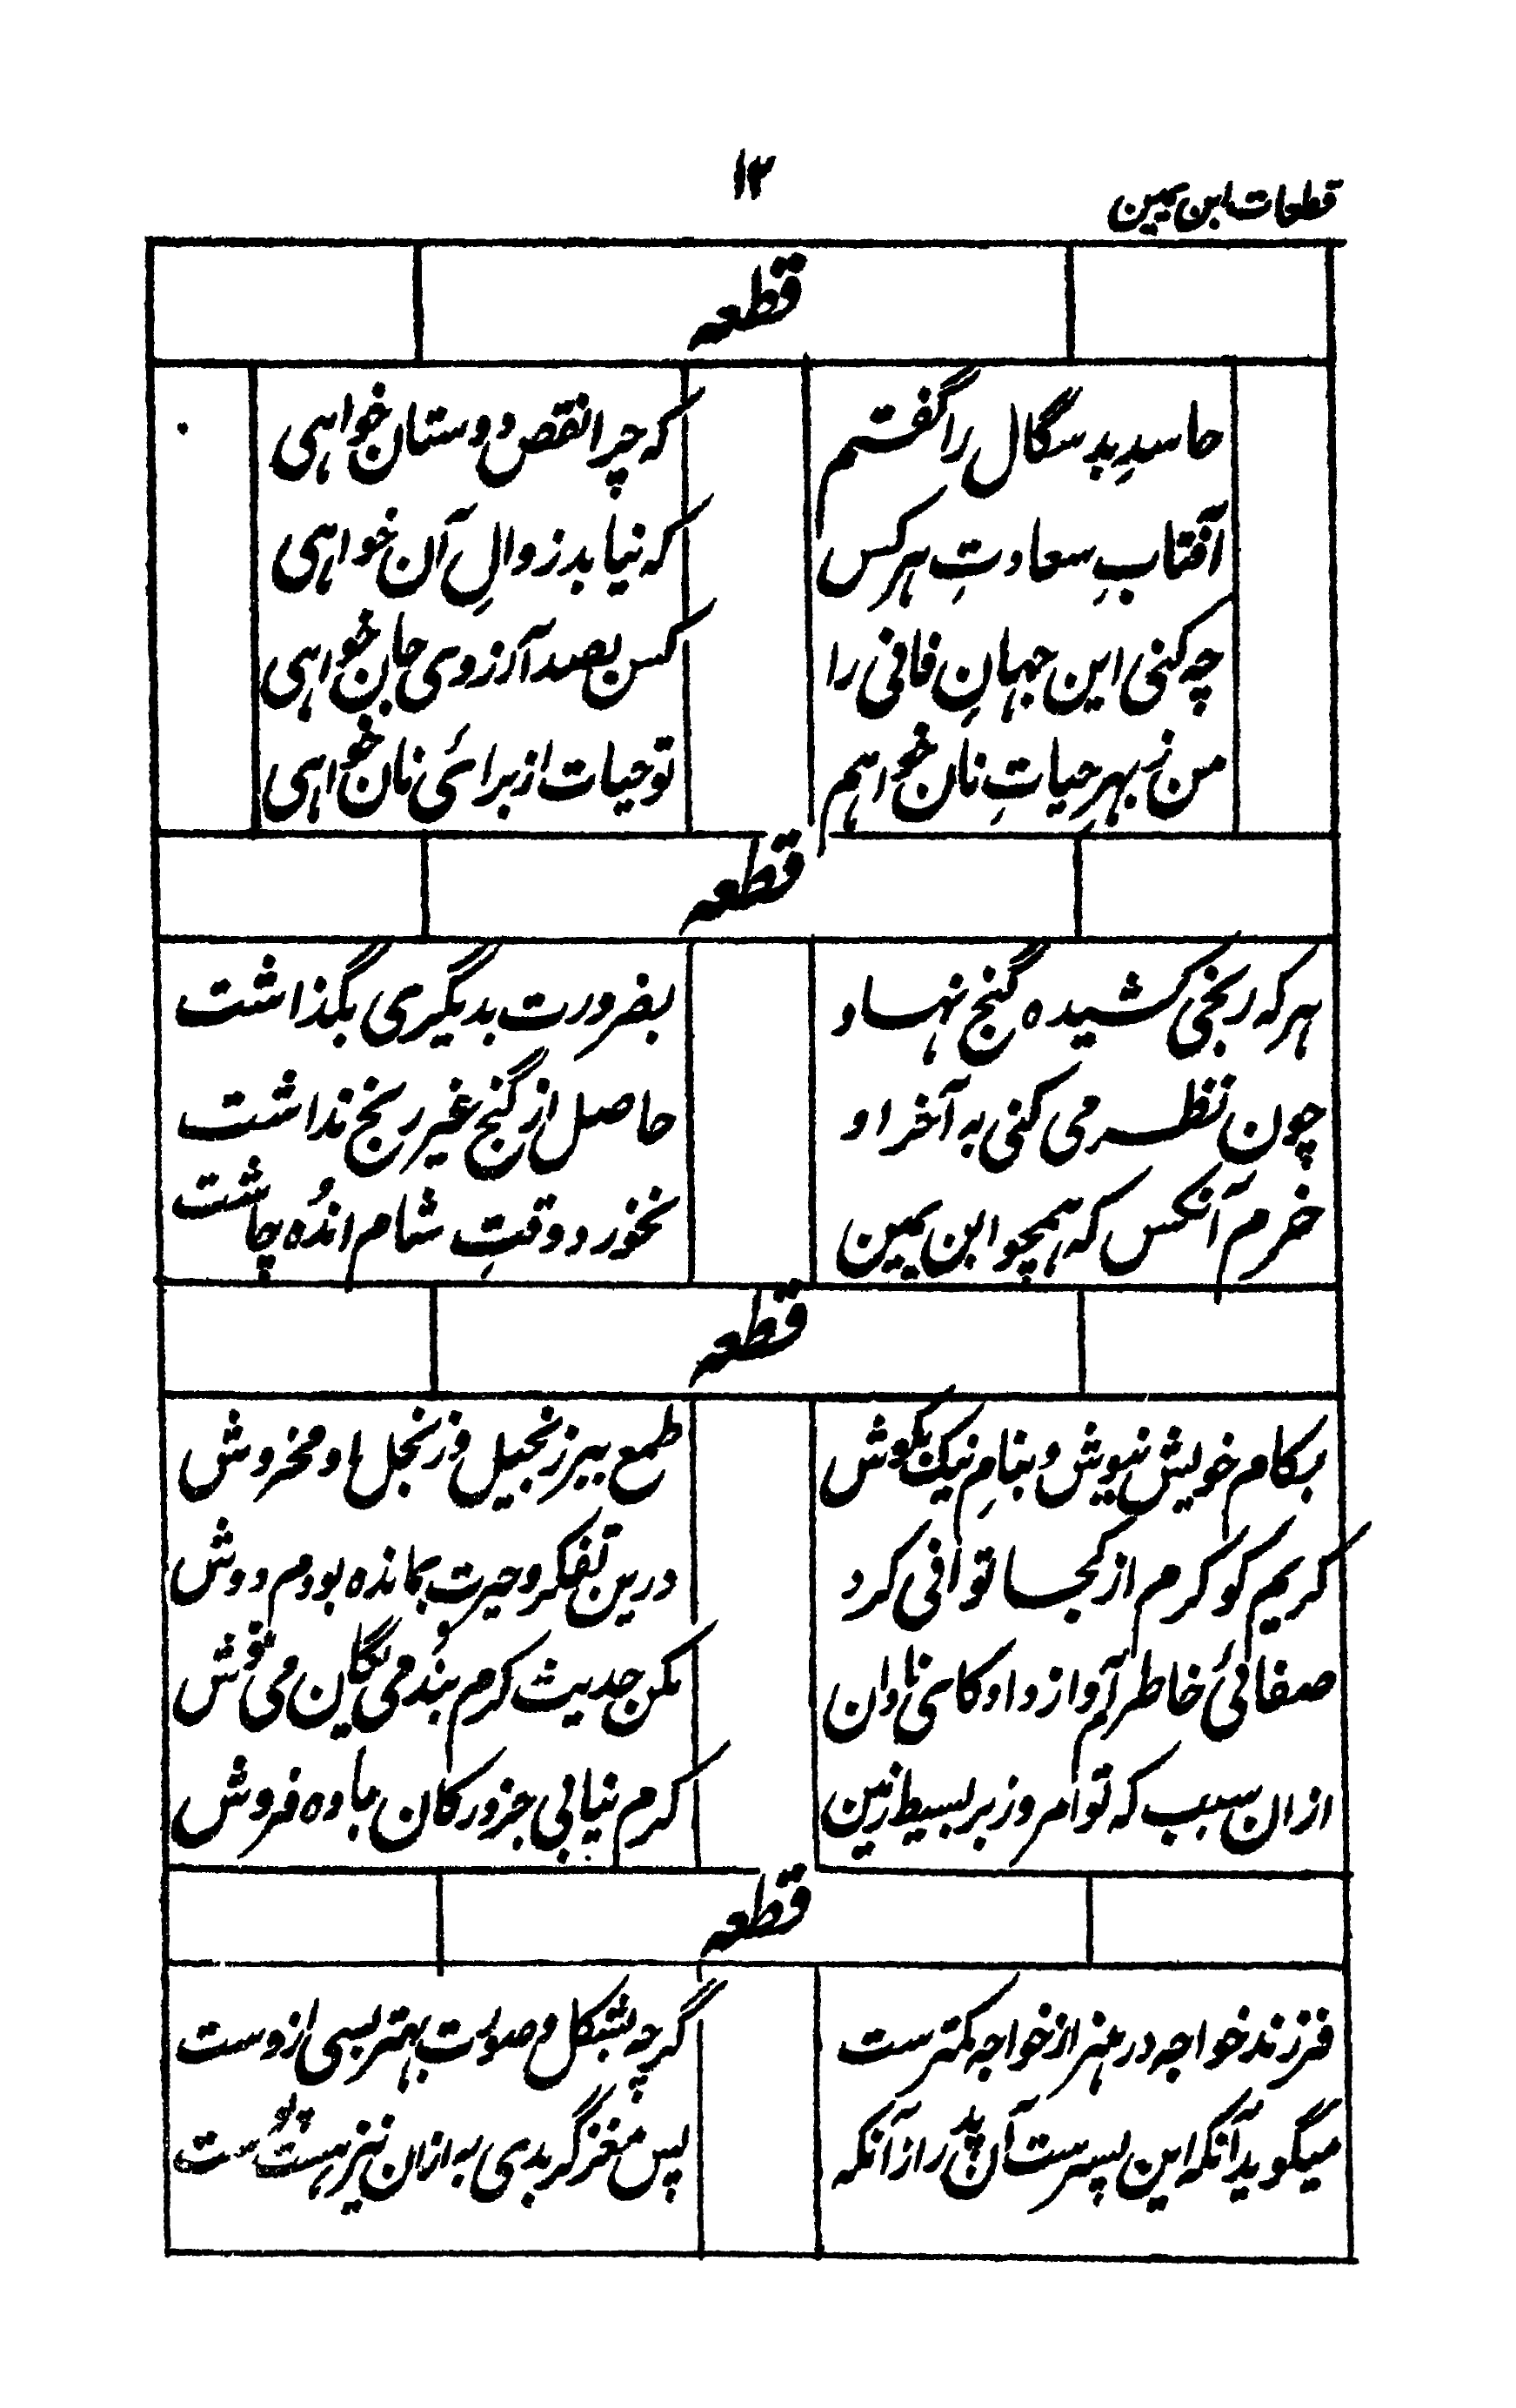 قطعات ابن یمین
۱۳
قطعہ
حاسدِ بدسگال را گفتم
کہ چرا نقص دوستان خواہی
آفتابِ سعادتِ ہر کس
کہ نیابد زوالِ آن خواہی
چہ کنی این جہانِ فانی را
کس بصد آرزوی جان خواہی
من ز بہرِ حیاتِ نان خواہم
تو حیات از برائی نان خواہی
قطعہ
ہر کہ رنجی کشیدہ گنج نہاد
بضرورت بدیگری بگذاشت
چون نظر می کنی بہ آخر او
حاصل از گنج غیر رنج نداشت
خرم آنکس کہ ہمچو ابن یمین
نخورد وقتِ شام اندُہ چاشت
قطعہ
بکام خویش نیوش و بنامِ نیک بکوش
طمع ببر ز نجیل و ز نجل ہا و مخروش
کریم کو کرم از کجا توانی کرد
درین تفکر و حیرت بماندہ بودم دوش
صفائیِ خاطرم آواز داد کای نادان
مکن حدیث کرم بندُ می لگاین می نوش
ازان سبب کہ تو امروز بر بسیط زمین
کرم نیابی جز در کان بادہ فروش
قطعہ
فرزند خواجہ در ہنر از خواجہ کمترست
گرچہ بشکل و صورت بہتر بسی ازوست
میگوید آنکہ این پسرست آن پدر از آنکہ
پس مغز گر بدی بہ ازان نیز ہست پوست